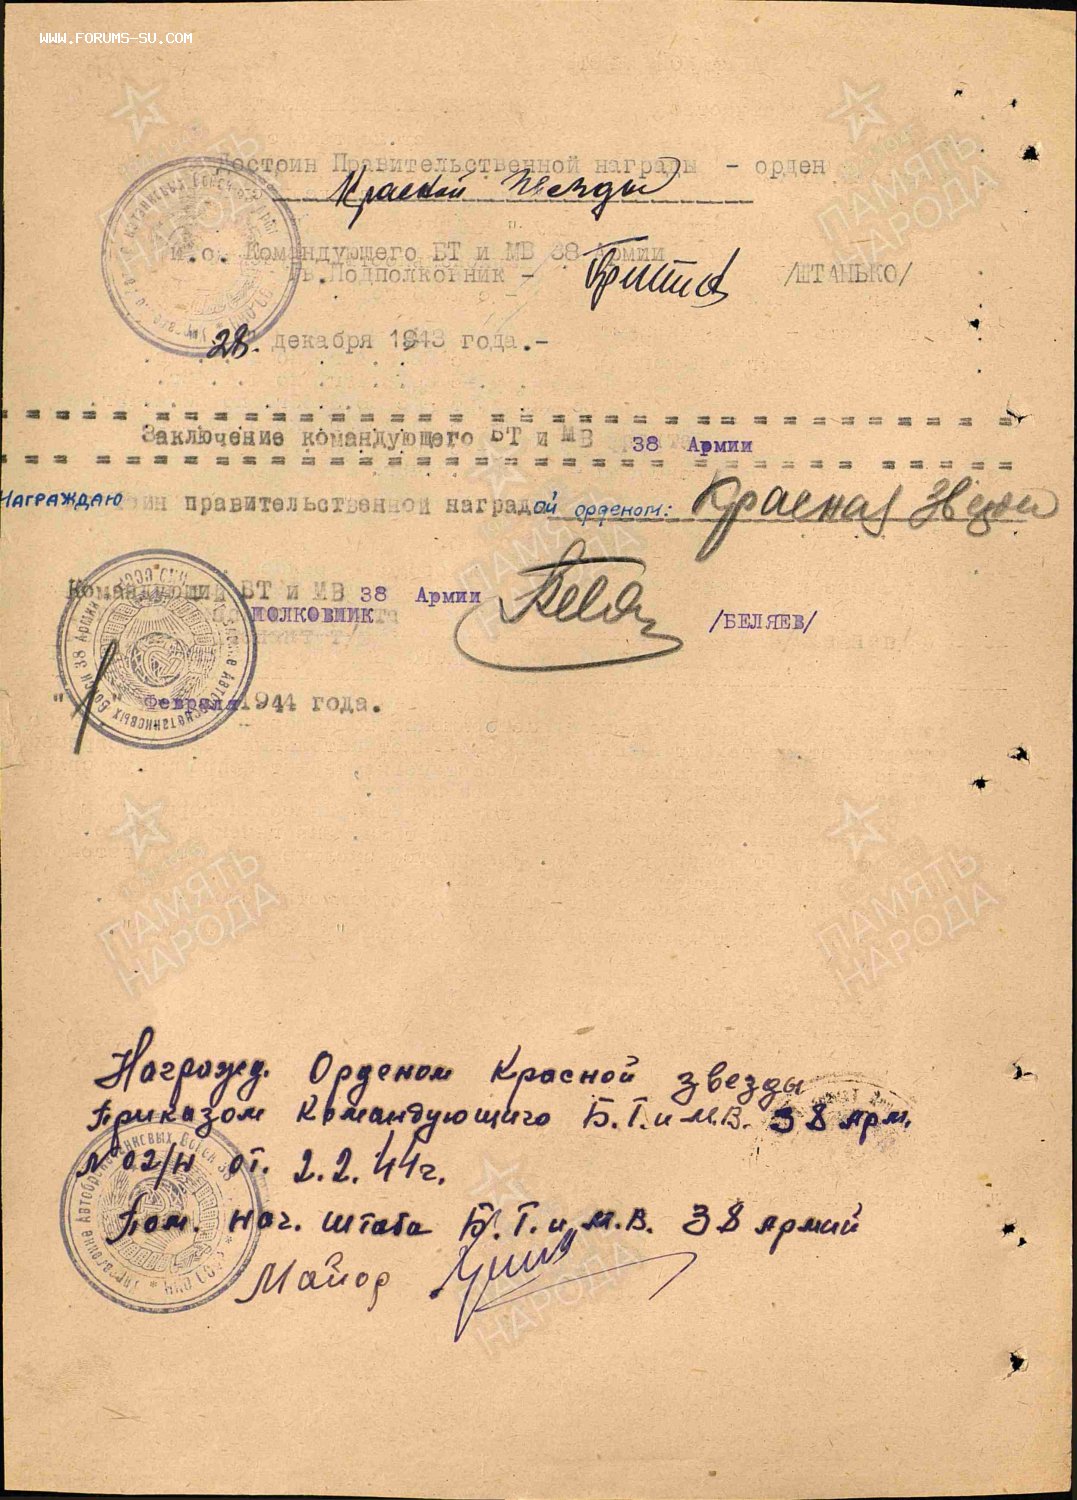 WWW.FORUMS-SU.COM
Достоин Правительственной награды - орден
Красной Звезды
и.о. Командующего БТ и МВ 38 Армии
Гв.Подполковник - /ШТАНЬКО/
28. декабря 1943 года.-
Заключение командующего БТ и МВ 38 Армии
НАГРАЖДАЮ правительственной наградой орденом: Красная Звезда
Командующий БТ и МВ 38 Армии
полковник /БЕЛЯЕВ/
"1" Февраля 1944 года.
Награжд. Орденом Красной звезды
Приказом Командующиго Б.Т. и М.В. 38 Арм.
№ 02/н от. 2.2.44г.
Пом. нач. штаба Б.Т. и М.В. 38 Армий
Майор
ПАМЯТЬ НАРОДА